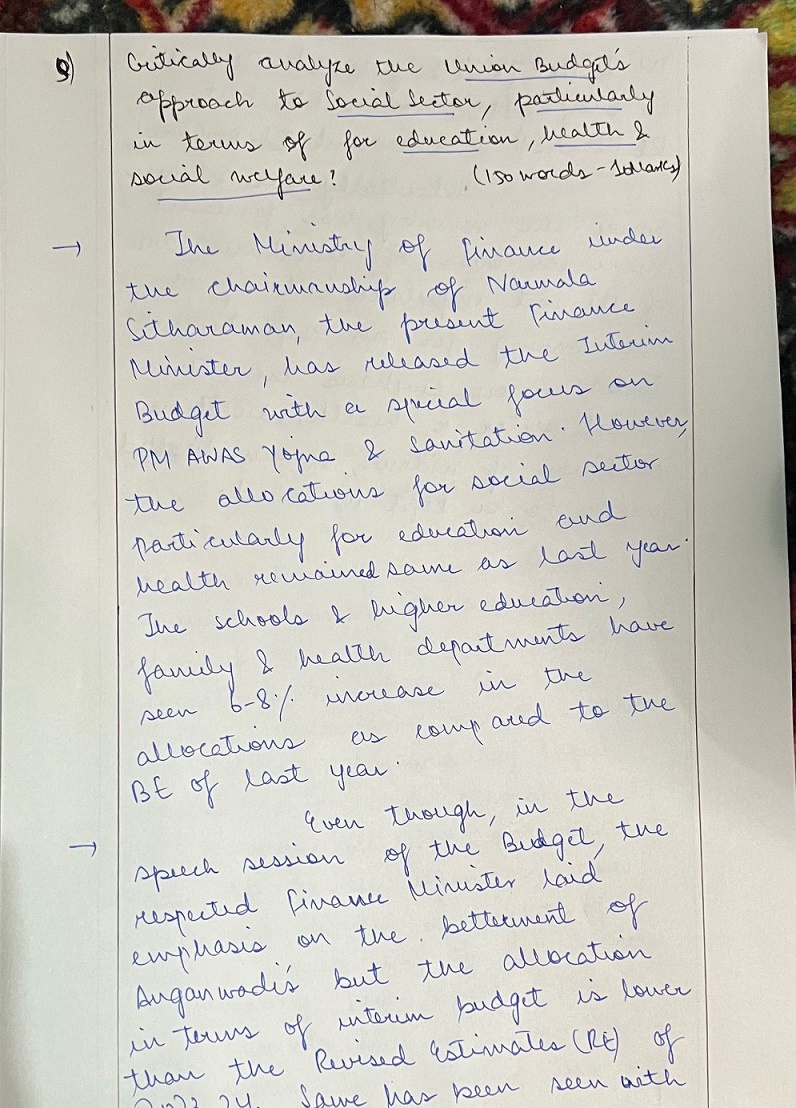 9) Critically analyze the Union Budget's
approach to Social Sector, particularly
in terms of for education, health &
social welfare? (150 words - 10Marks)
→ The Ministry of finance under
the chairmanship of Narmala
Sitharaman, the present Finance
Minister, has released the Interim
Budget with a special focus on
PM AWAS Yojna & Sanitation. However,
the allocations for social sector
particularly for education and
health remained same as last year.
The schools & higher education,
family & health departments have
seen 6-8% increase in the
allocations as compared to the
BE of last year.
→ Even though, in the
speech session of the Budget, the
respected Finance Minister laid
emphasis on the betterment of
Anganwadi's but the allocation
in terms of interim budget is lower
than the Revised Estimates (RE) of
Same has been seen with